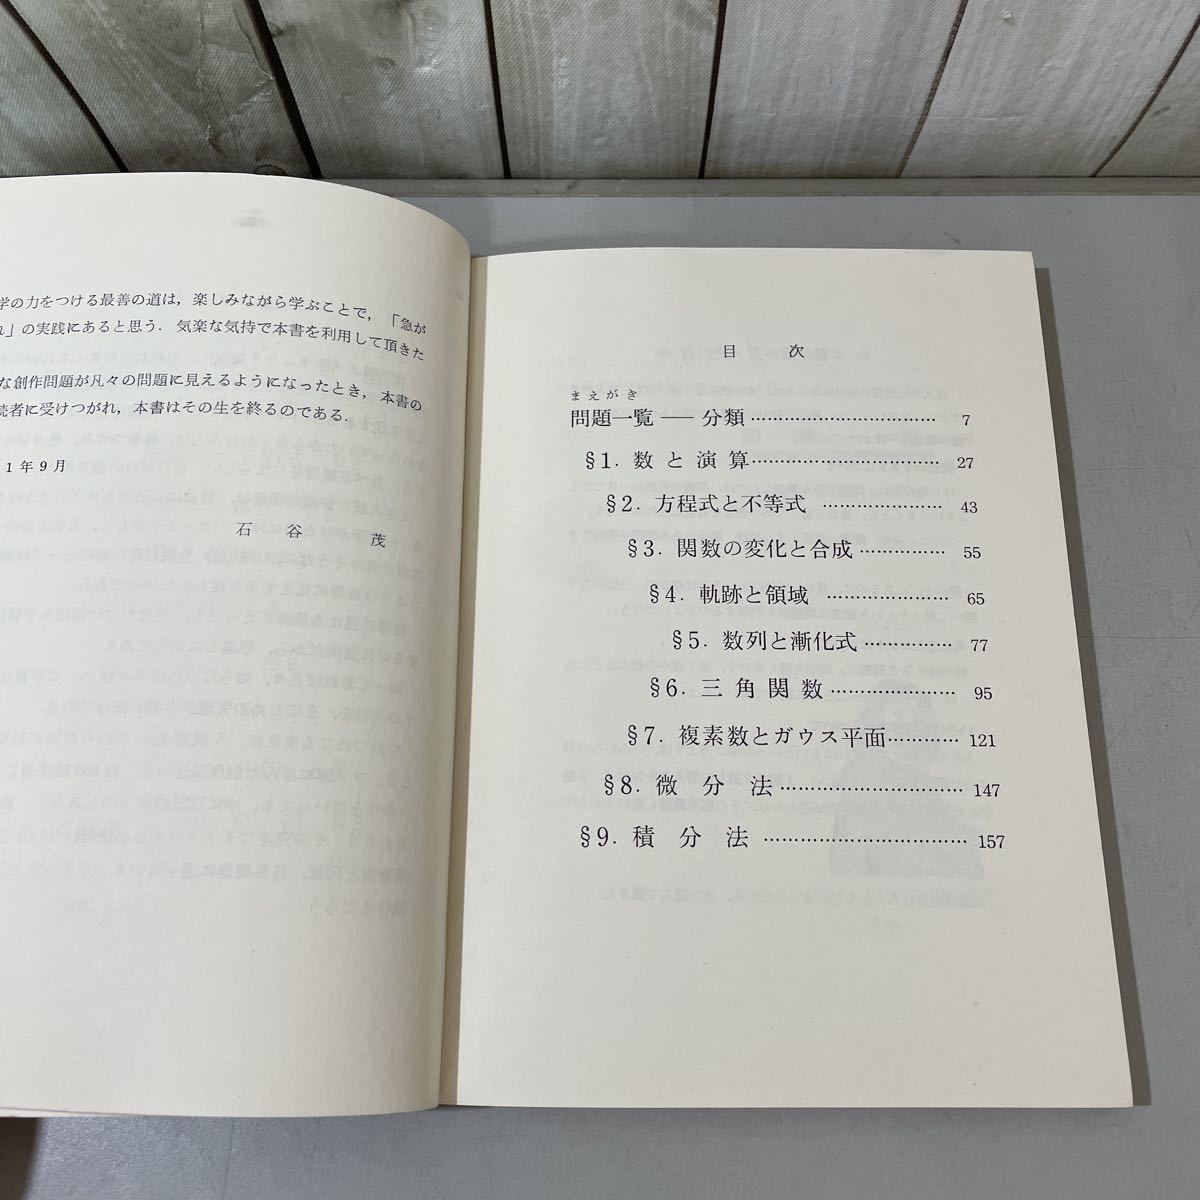 学の力をつける最善の道は，楽しみながら学ぶことで，「急が
」の実践にあると思う．気楽な気持で本書を利用して頂きた
な創作問題が凡々の問題に見えるようになったとき，本書の
読者に受けつがれ，本書はその生を終るのである．
1年9月
石谷 茂
目次
まえがき
問題一覧 — 分類 …………………………… 7
§1. 数と演算 …………………………… 27
§2. 方程式と不等式 ………………… 43
§3. 関数の変化と合成 …………… 55
§4. 軌跡と領域 …………………… 65
§5. 数列と漸化式 ………………… 77
§6. 三角関数 ……………………… 95
§7. 複素数とガウス平面 ………… 121
§8. 微分法 ………………………… 147
§9. 積分法 ………………………… 157